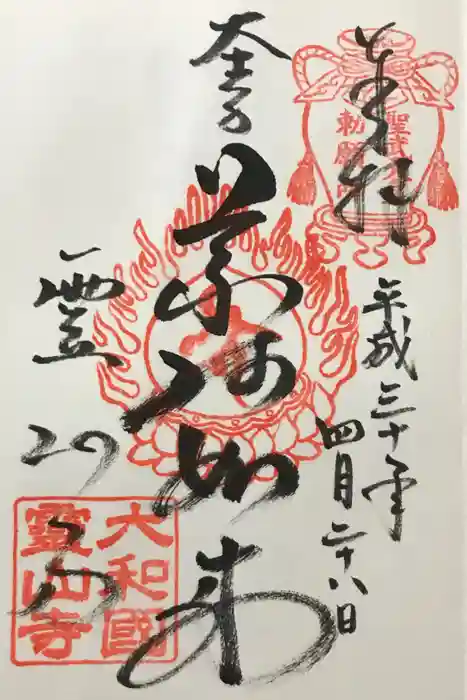 奉拝
聖武
勅願
平成三十年
四月二十八日
薬師如来
霊山寺
大和國
靈山寺